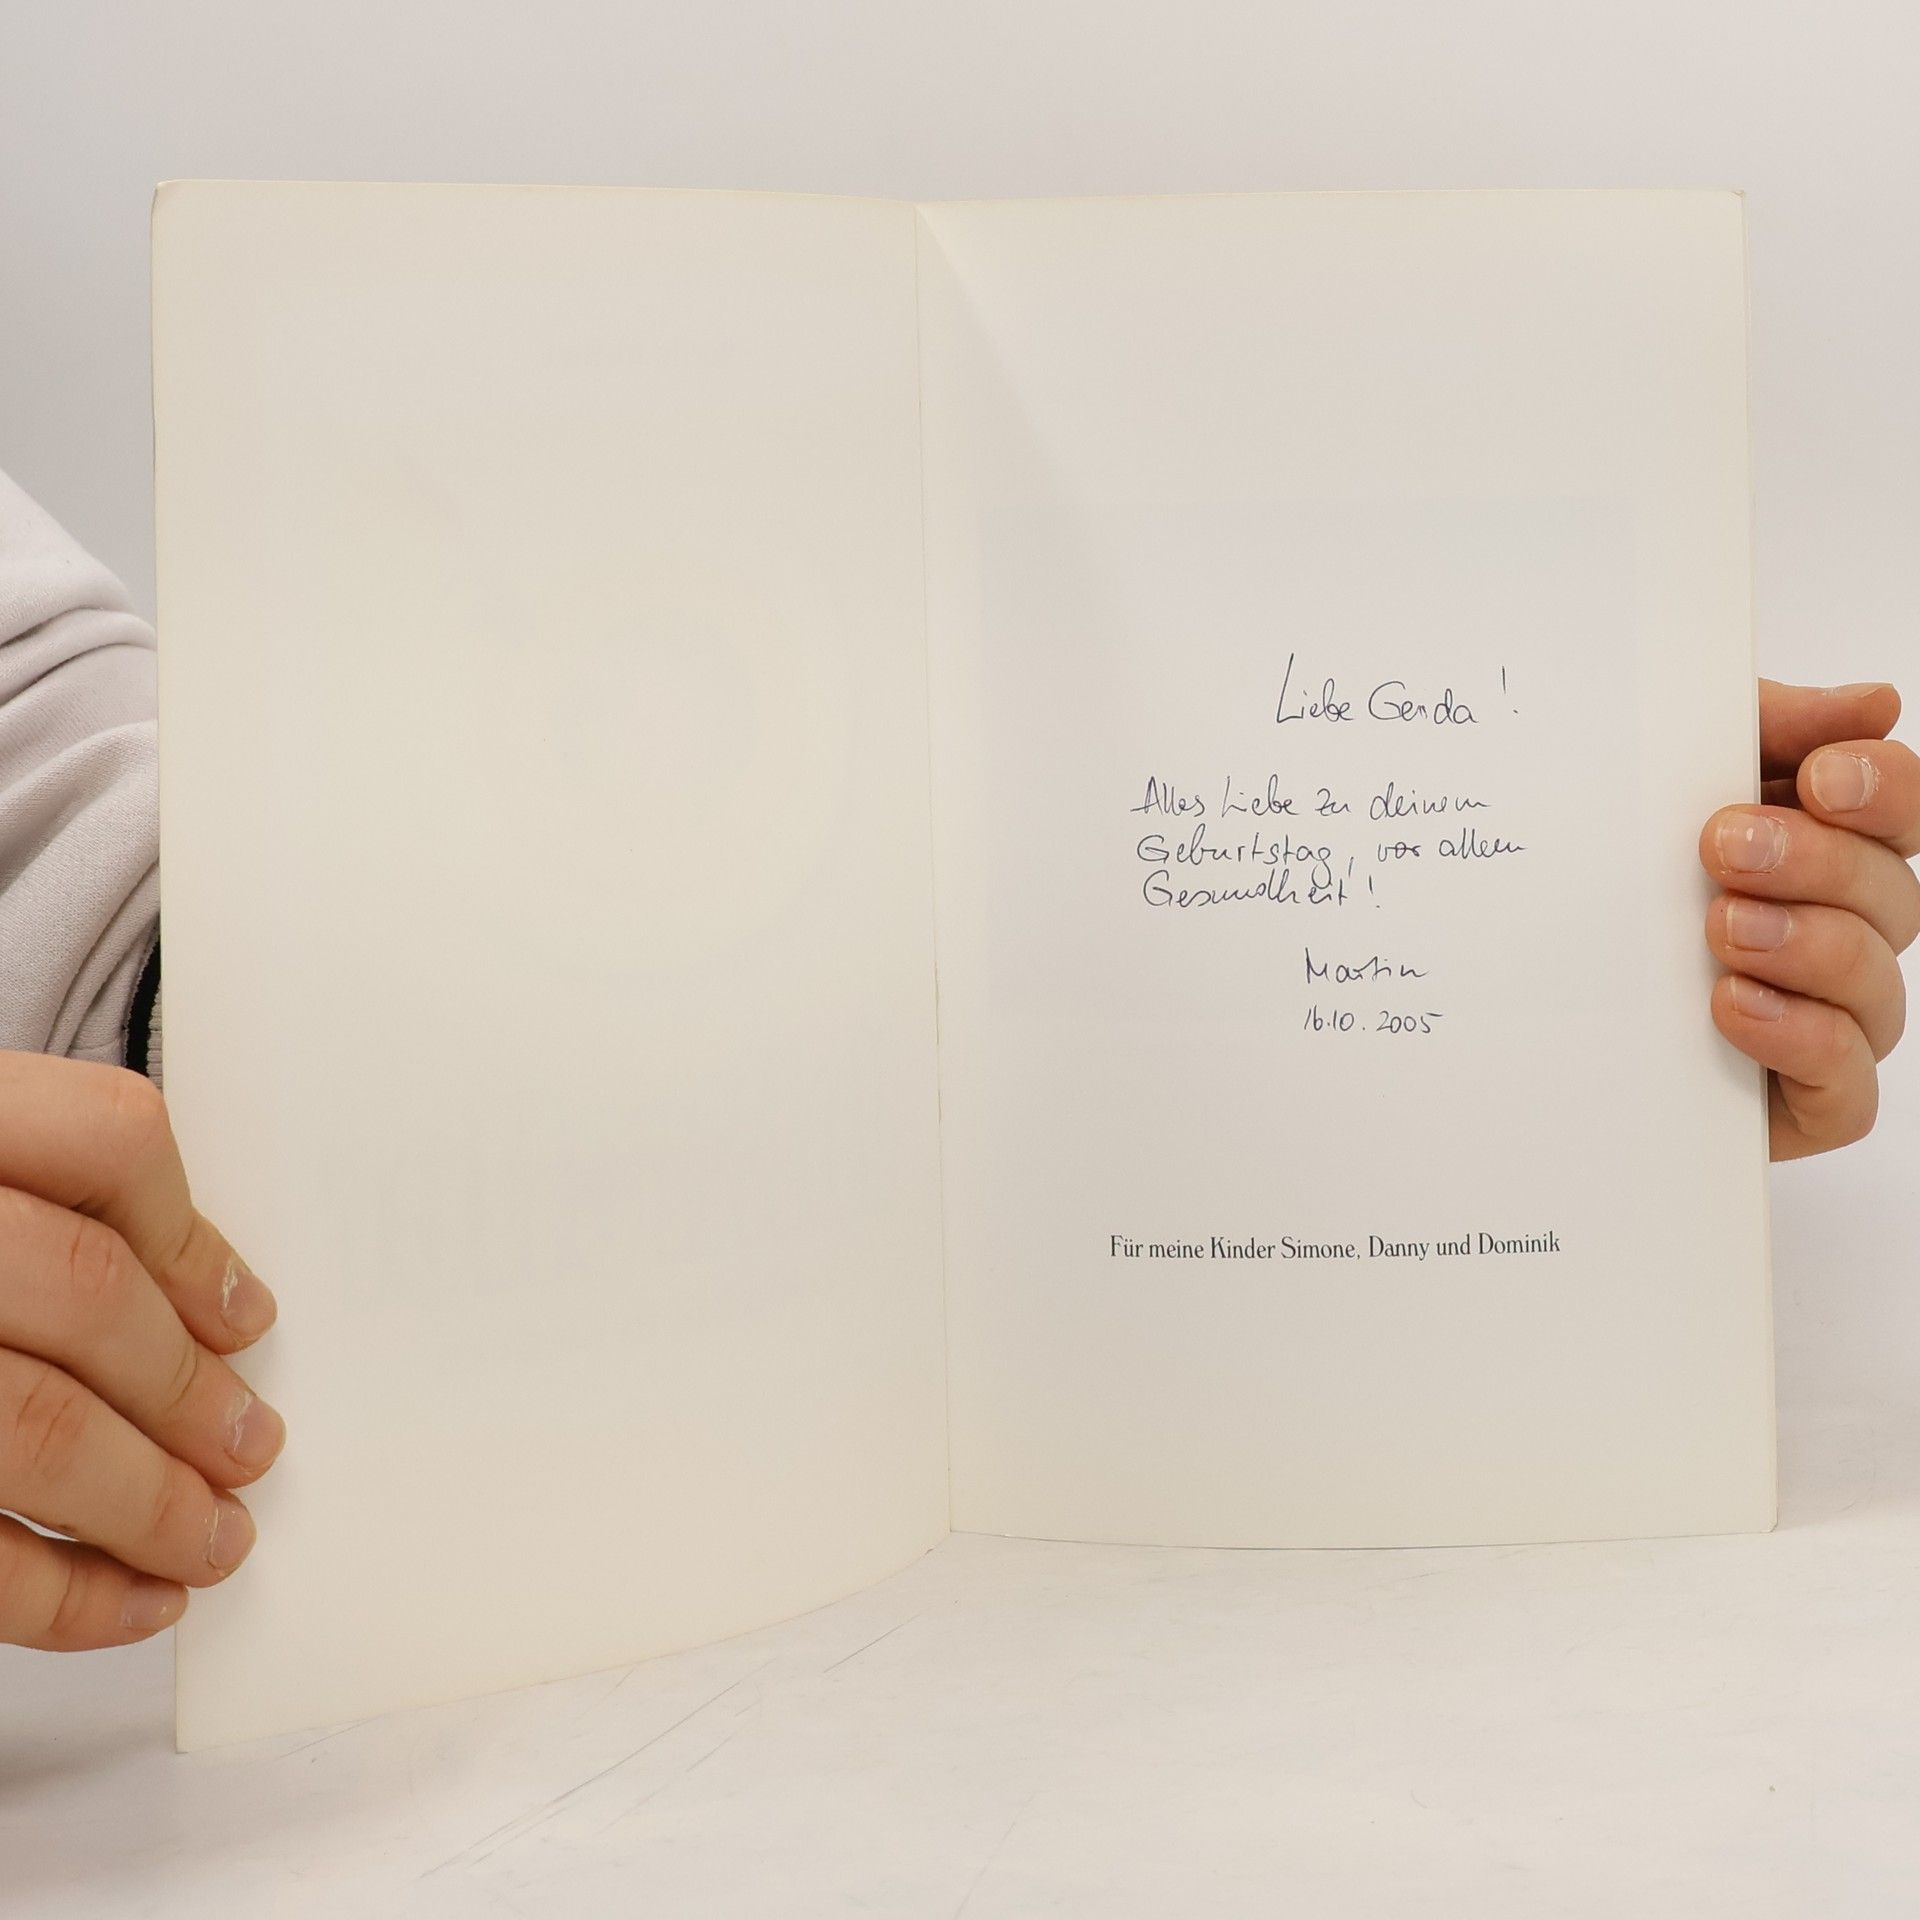 Liebe Gerda !
Alles Liebe zu deinem
Geburtstag, vor allem
Gesundheit !
Martin
16.10. 2005
Für meine Kinder Simone, Danny und Dominik